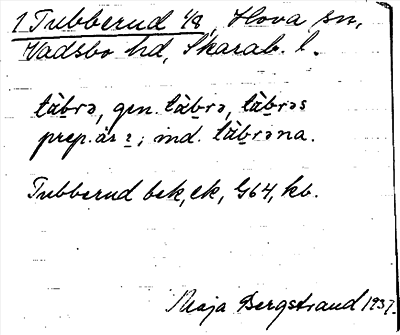 1 Tubberud 1/8, Hova sn,
Vadsbo hd, Skarab. l.
tàḇrə, gen. tàḇrə, tàḇrəs
prep. är ı; ind. tàḇrəna.
Tubberud bek, ek, G64, kb.
Maja Bergstrand 1937.